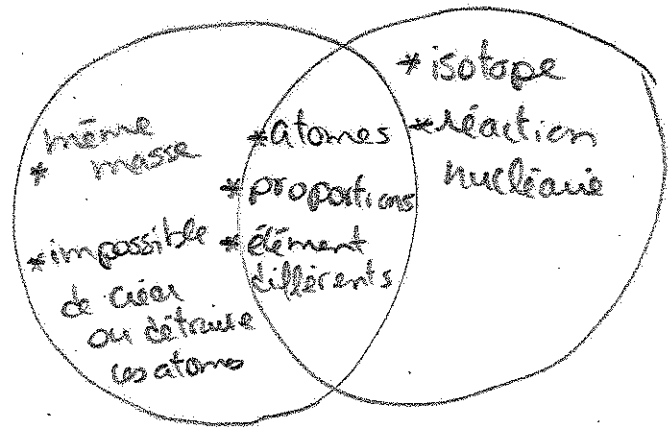 * même
masse
* impossible
de créer
ou détruire
les atomes
* atomes
* proportions
* élément
différents
* isotope
* réaction
nucléaire